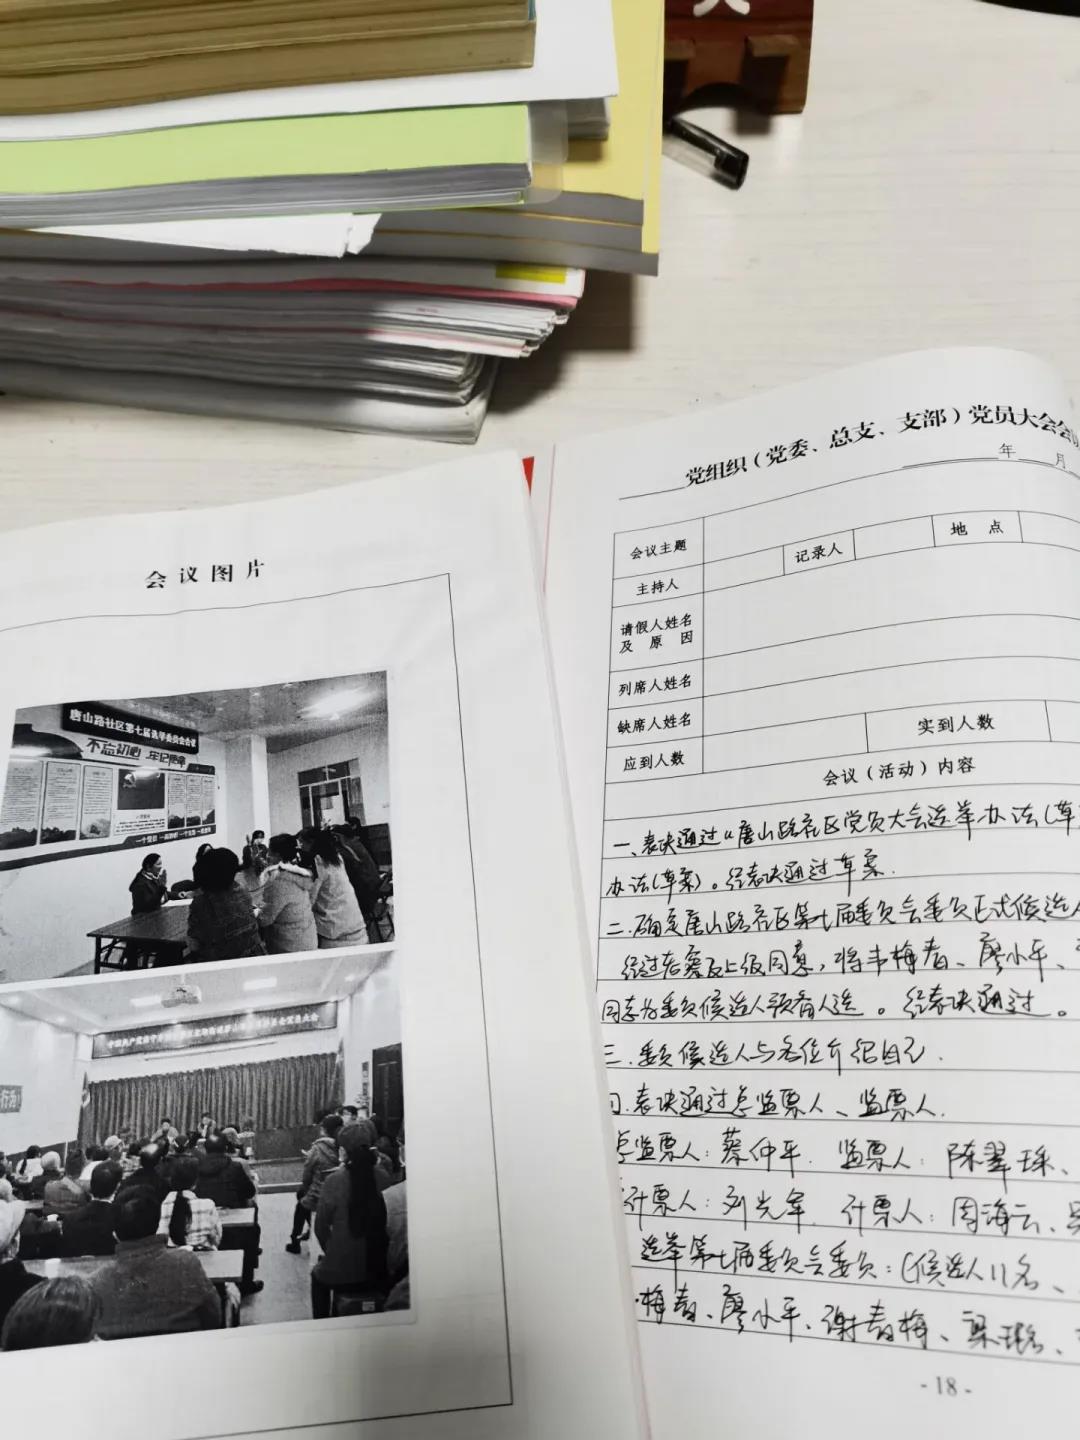 会议图片
唐山路社区第七届选举委员会会议
不忘初心 牢记使命
一个党员 一面旗帜
党组织（党委、总支、支部）党员大会会议
年 月
会议主题
记录人
地点
主持人
请假人姓名
及原因
列席人姓名
缺席人姓名
应到人数
实到人数
会议（活动）内容
一、表决通过“唐山路社区党员大会选举办法（草
办法（草案）。经表决通过草案.
二.确定唐山路社区第七届委员会委员正式候选人
经过酝酿及上级同意，将韦梅春、廖小平、
同志为委员候选人预备人选。经表决通过。
三.委员候选人与各位介绍自己.
四.表决通过总监票人、监票人.
总监票人：蔡仲平. 监票人：陈翠珠、
计票人：刘光军. 计票人：周海云、吴
选举第七届委员会委员：（候选人11名、
梅春、廖小平、谢春梅、梁璐、
- 18 -